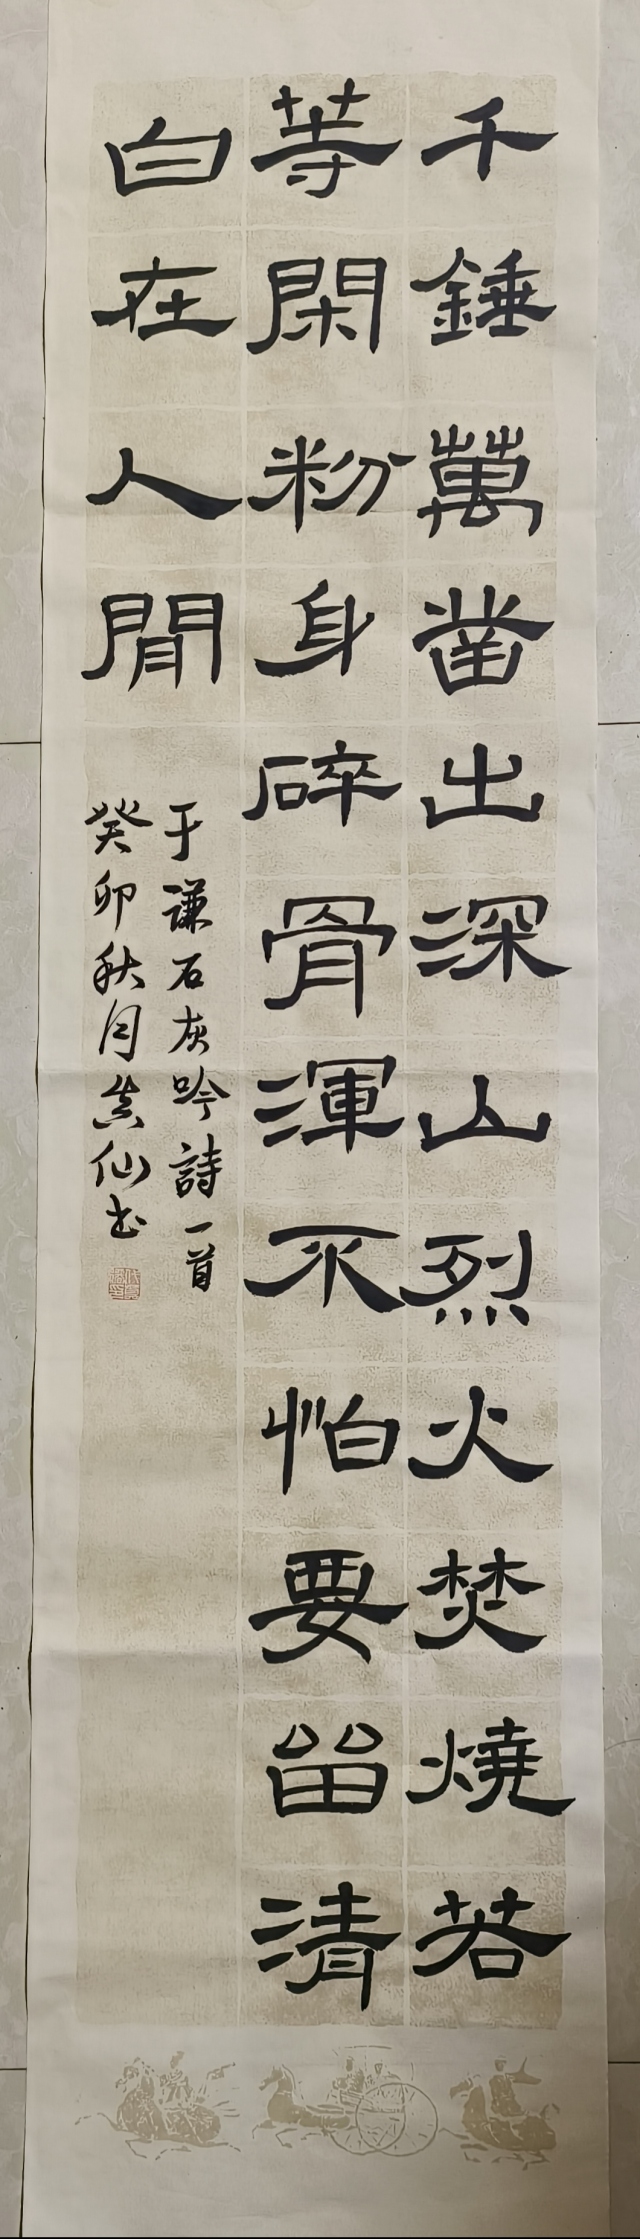 千錘萬凿出深山烈火焚燒若
等閑粉身碎骨渾不怕要留清
白在人間
于谦石灰吟詩一首
癸卯秋月 仙书